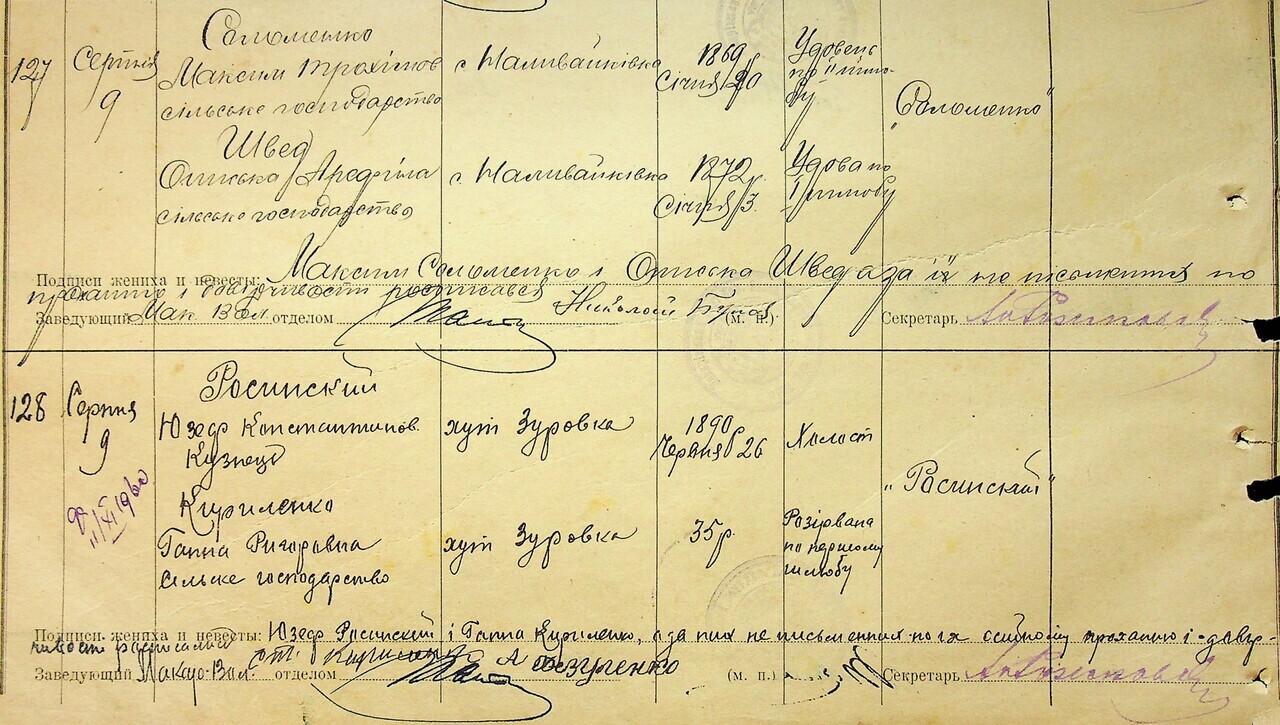 127 Серпня 9
Соломенко
Максим Трохимов
сільське господарство
с. Наливайківка
1869
Січня 20
Удовець
по
шлю-
бу
"Соломенко"
Швед
Описька
сільське господарство
с. Наливайківка
1872 р.
Січня 3.
Удова по
I шлюбу
Подписи жениха и невесты: Максим Соломенко і Описька Швед а за їх не письменних по
росписався
Заведующий Мак. Вол. отделом (м. п.) Секретарь
128 Серпня 9
Росинский
Юзеф Константинов
Кузнец
хут Зуровка
1890
Червня 26
Холост
"Росинский"
Кириленко
Ганна Григоровна
сільске господарство
хут Зуровка
35 р.
Розірвана
по первому
шлюбу
Подписи жениха и невесты: Юзеф Росинский і Ганна Кириленко, а за них не письменних по їх особистому проханню і довір-
чивости росписался
Заведующий Макаро-Вол. отделом (м. п.) Секретарь